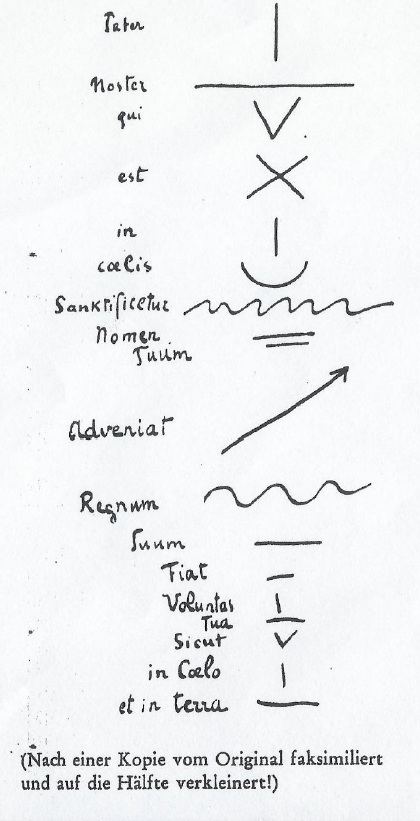 Pater
Noster
qui
est
in
cœlis
Sanktificetur
Nomen
Tuum
Adveniat
Regnum
Tuum
Fiat
Voluntas
Tua
Sicut
in Cœlo
et in terra
(Nach einer Kopie vom Original faksimiliert
und auf die Hälfte verkleinert!)